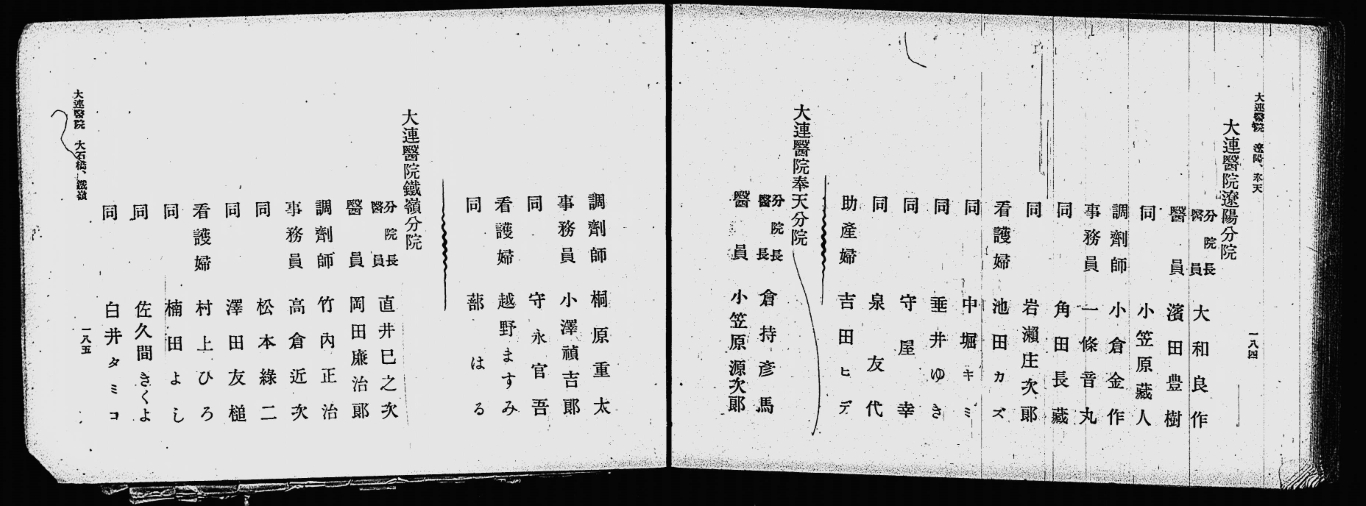 大連醫院 遼陽、奉天
一八四
大連醫院遼陽分院
分院長 醫員 大和良作
醫員 濱田豊樹
同 小笠原藏人
調劑師 小倉金作
事務員 一條音丸
同 角田長藏
同 岩瀬庄次郎
看護婦 池田カズ
同 中堀キミ
同 垂井ゆき
同 守屋幸
同 泉友代
助產婦 吉田ヒデ
大連醫院奉天分院
分院長 醫長 倉持彦馬
醫員 小笠原源次郎
調劑師 桐原重太
事務員 小澤禎吉郎
同 守永官吾
看護婦 越野ますみ
同 はる
大連醫院鐵嶺分院
分院長 醫員 直井巳之次
醫員 岡田廉治郎
調劑師 竹內正治
事務員 高倉近次
同 松本綠二
同 澤田友槌
看護婦 村上ひろ
同 楠田よし
同 佐久間きくよ
同 白井タミコ
大連醫院 大石橋、鐵嶺
一八五